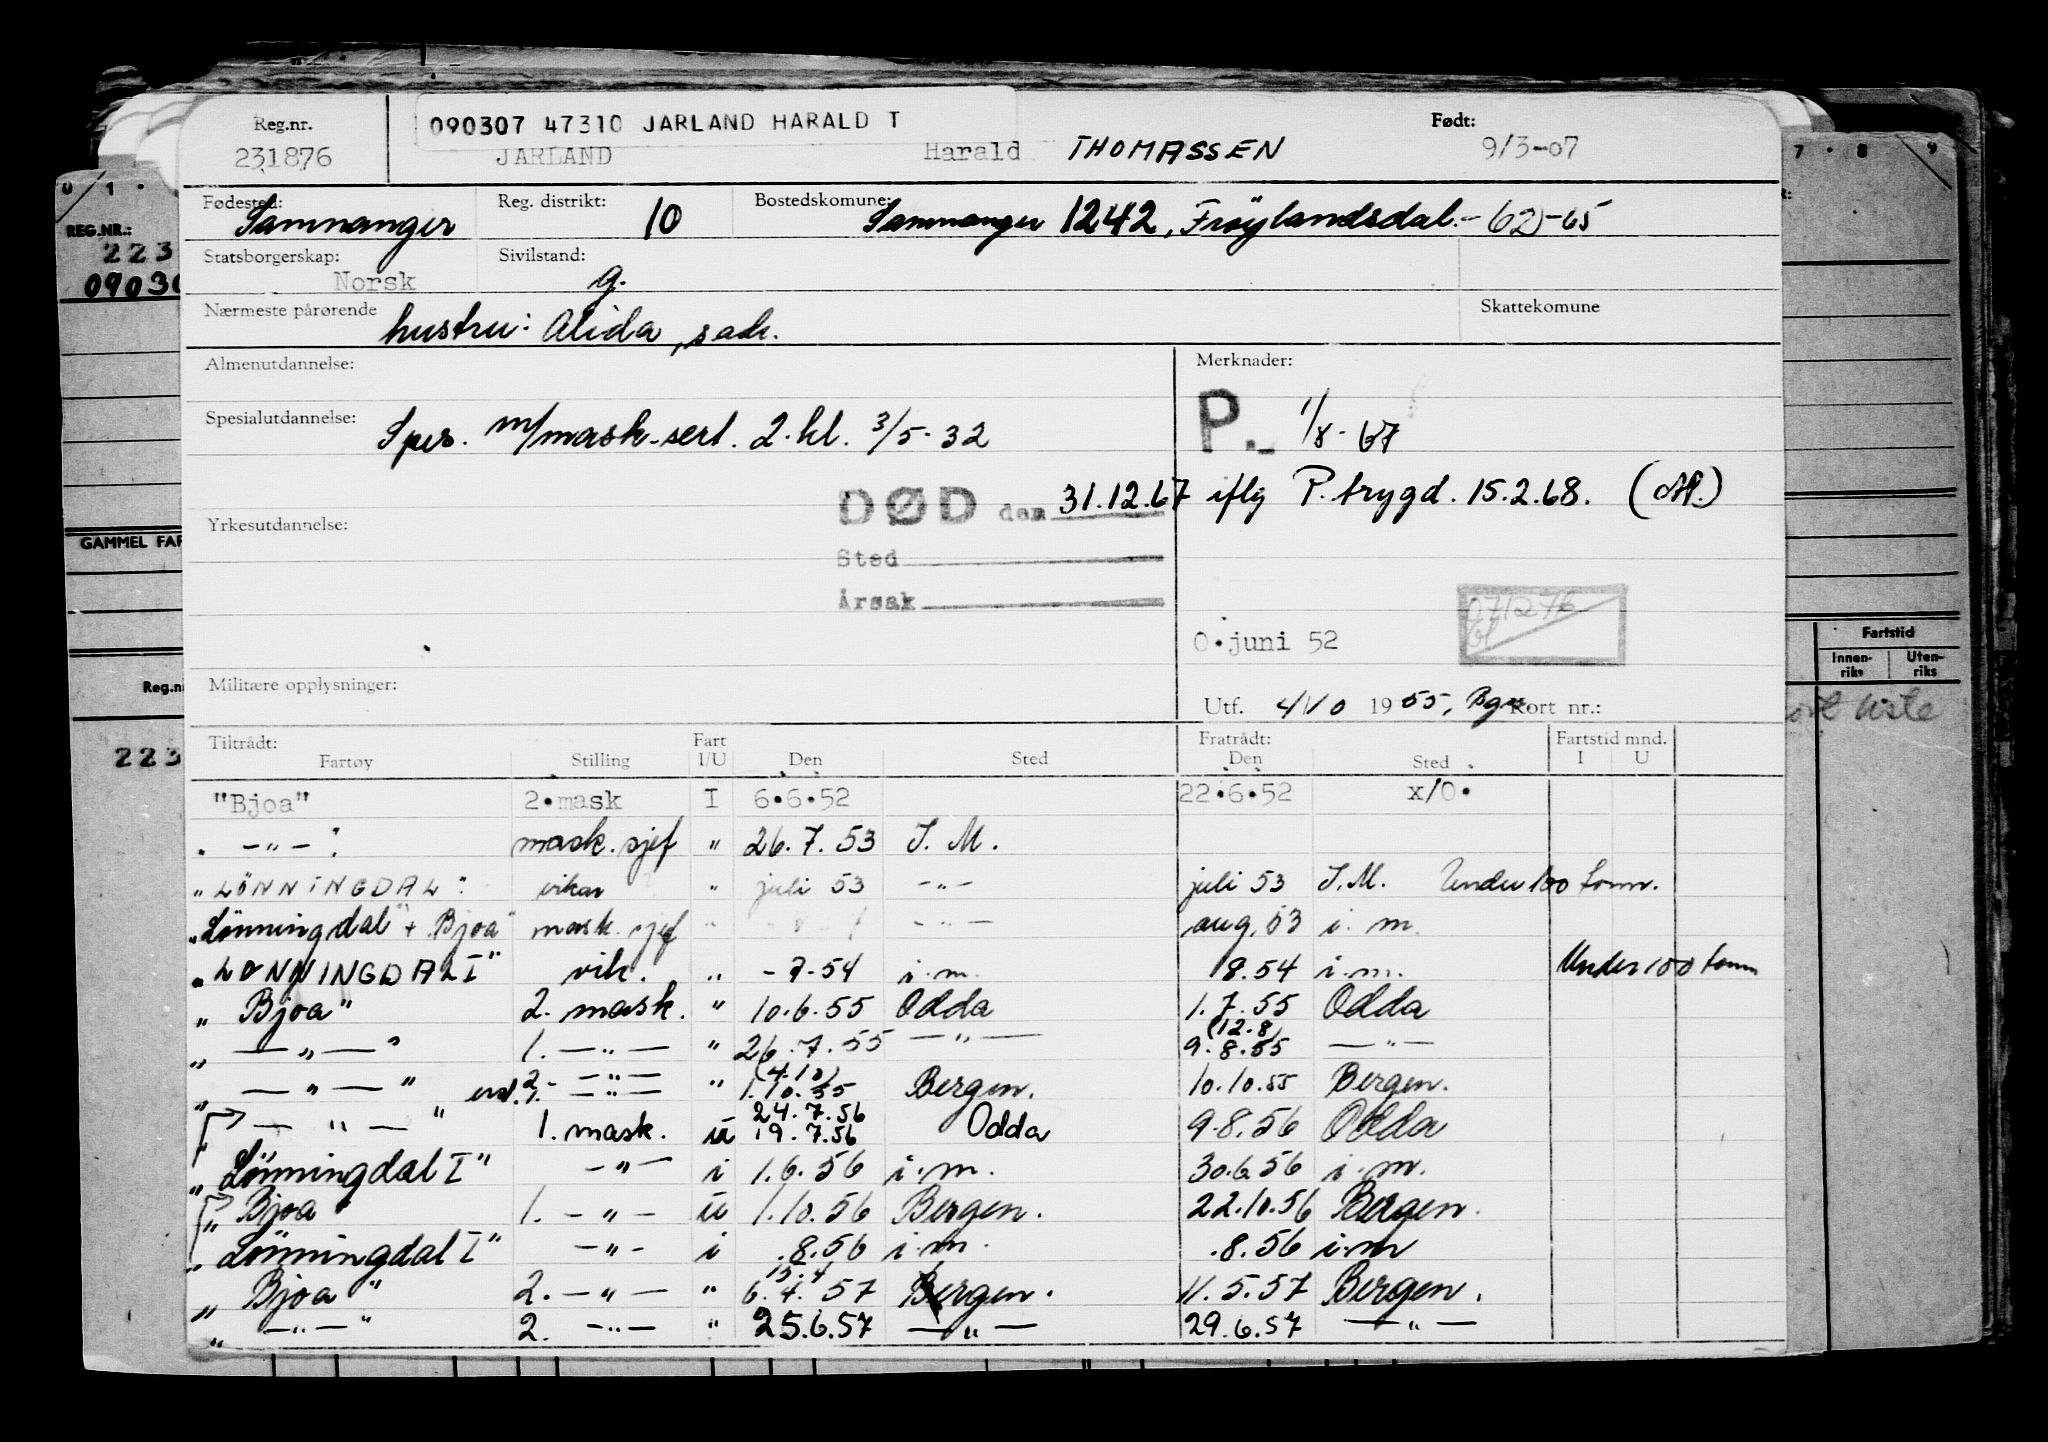 090307 47310 JARLAND HARALD T
Reg.nr. Født:
231876 JARLAND Harald THOMASSEN 9/3-07
Fødested: Reg. distrikt: Bostedskomune:
Samnanger 10 Samnanger 1242, Frøylandsdal.- 62-65
Statsborgerskap: Sivilstand:
Norsk g.
Nærmeste pårørende Skattekomune
hustru: Alida, sadr.
Almenutdannelse: Merknader:
P. 1/8-67
Spesialutdannelse: m/mask-sert. 2.kl. 3/5-32
DØD den 31.12.67 iflg P.trygd. 15.2.68.
Yrkesutdannelse:
Sted
Årsak
071276
O.juni 52
Militære opplysninger:
Utf. 4/10 1955, Bgn. Kort nr.:
Tiltrådt: Fart Fratrådt: Fartstid mnd.
Fartøy Stilling I/U Den Sted Den Sted I U
"Bjoa" 2.mask I 6.6.52 22.6.52 x/O.
" -"- " mask.sjef " 26.7.53 I.M.
"LØNNINGDAL" vikar " juli 53 -"- juli 53 I.M. Under 100 tonn.
"Lønningdal" + "Bjoa" mask.sjef " -"- aug.53 i.m.
"LØNNINGDAL I" vik. " -7-54 i.m. 8.54 i.m. Under 100 tonn
"Bjoa" 2. mask. " 10.6.55 Odda 1.7.55 Odda
(12.8)
" —"— " 1. —"— " 26.7.55 —"— 9.8.55 —"—
2. —"— (4.10)
" —"— " 1. —"— " 1.10.55 Bergen. 10.10.55 Bergen.
24.7.56
" —"— " 1. mask. u 19.7.56 Odda 9.8.56 Odda
"Lønningdal I" -"- i 1.6.56 i.m. 30.6.56 i.m.
"Bjoa 1. -"- u 1.10.56 Bergen. 22.10.56 Bergen.
"Lønningdal I" -"- i .8.56 i.m. .8.56 i.m
15.4
"Bjoa" 2. -"- " 6.4.57 Bergen. 11.5.57 Bergen.
" -"- " 2. -"- " 25.6.57 —"— 29.6.57 —"—
0 1
REG.NR.:
223
0903
GAMMEL FAR
Reg.nr
223
7 8 9
Fartstid
Innen-
riks
Uten-
riks
liste